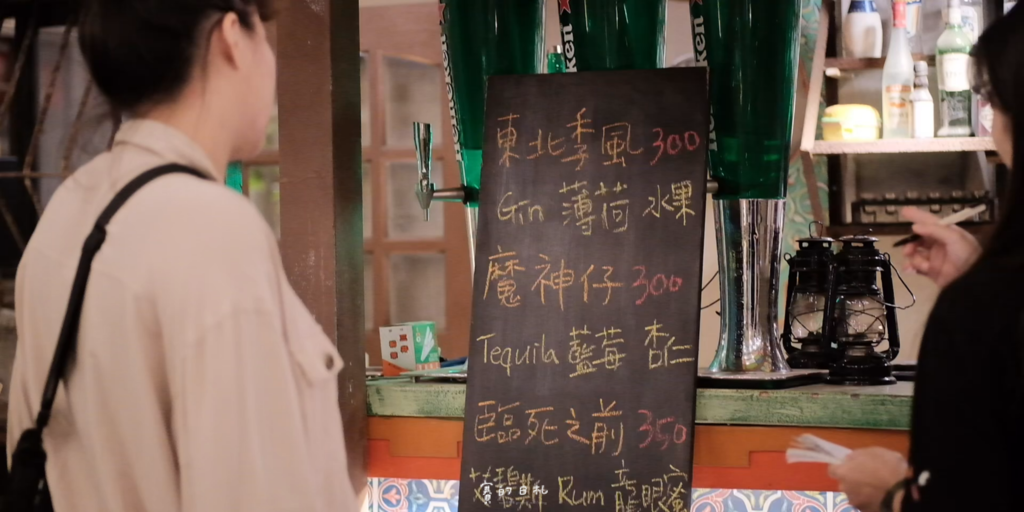 東北季風 300
Gin 薄荷 水果
魔神仔 300
Tequila 藍莓 杏仁
臨死之前 350
艾碧斯 Rum 龍眼蜜
賽的日札